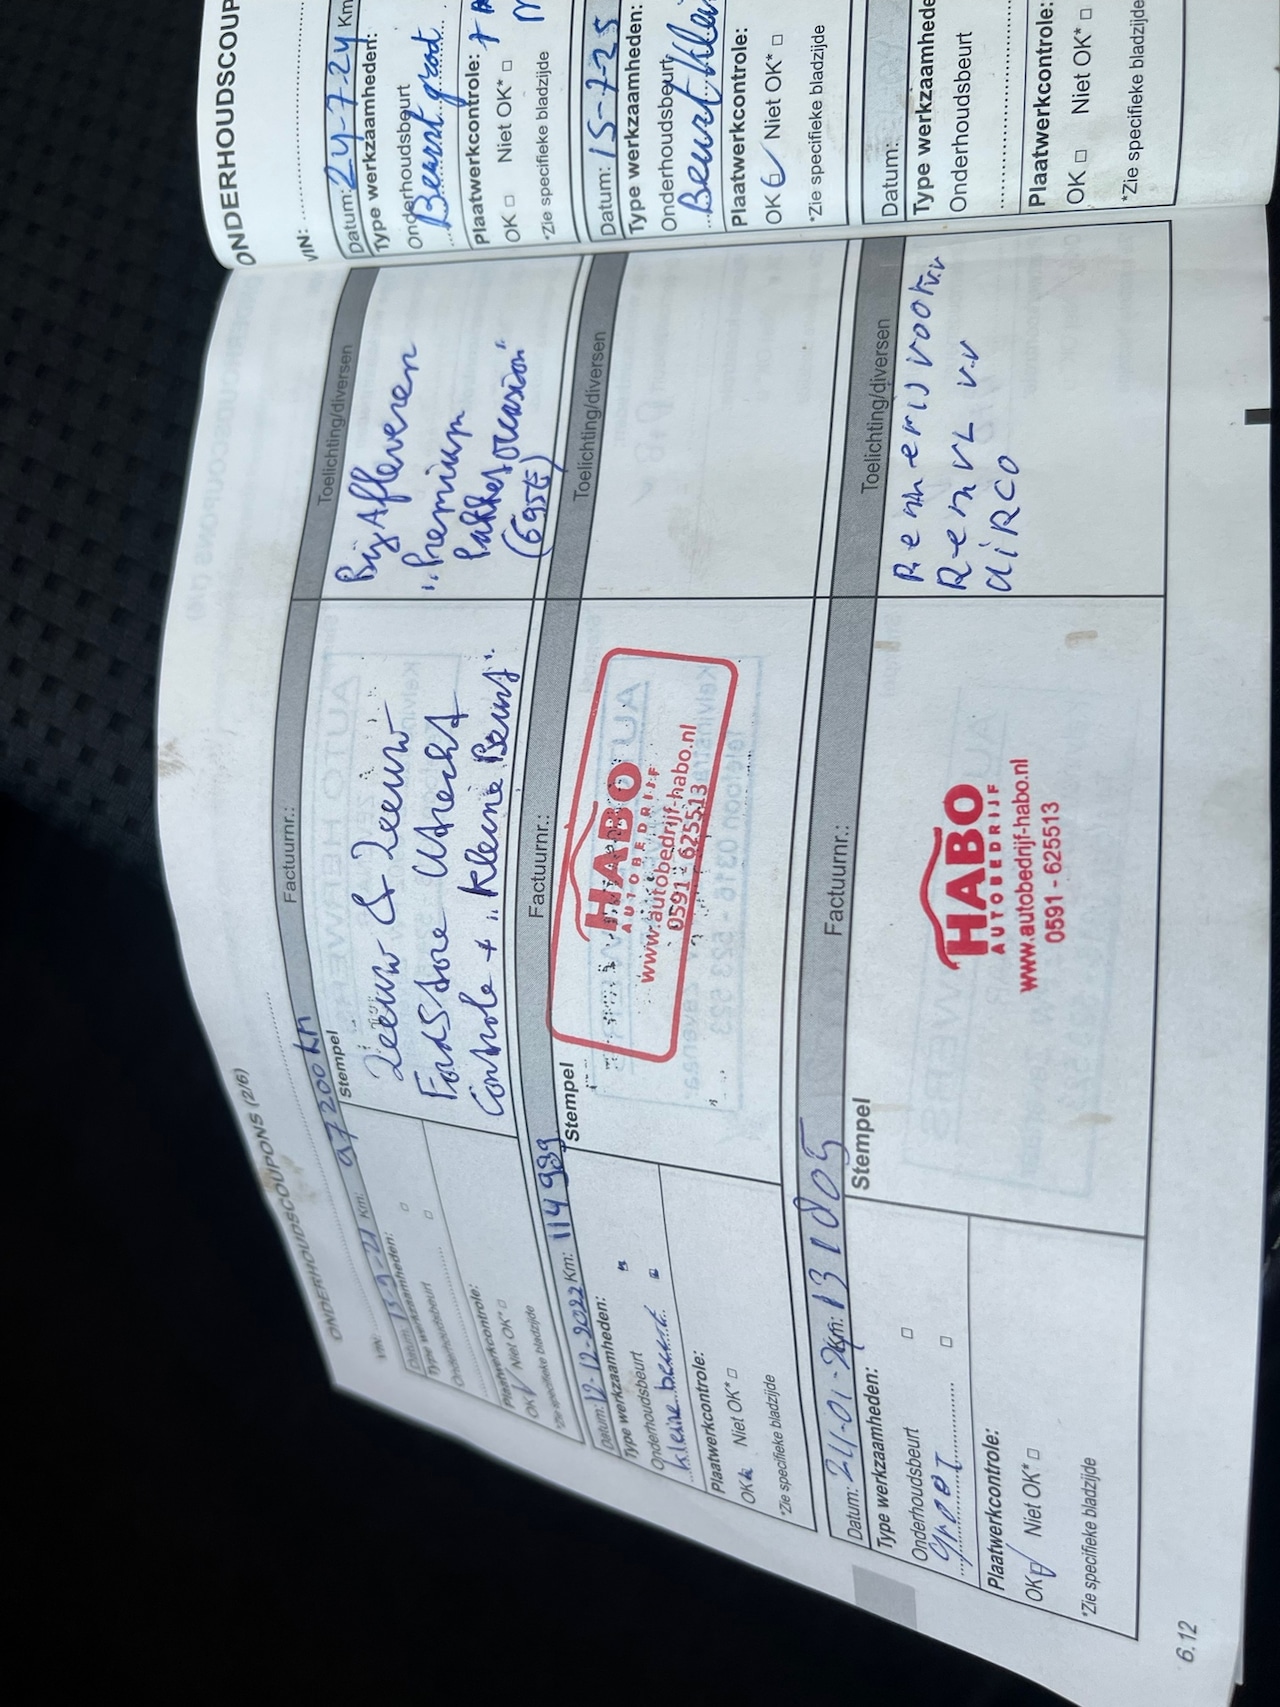 ONDERHOUDSCOUPONS (2/6)
VIN:
Datum: 13-9-21 Km: 97200 km Factuurnr.:
Type werkzaamheden:
Onderhoudsbeurt
Plaatwerkcontrole:
OK Niet OK*
*Zie specifieke bladzijde
Stempel
Leeuw & Leeuw
Fordstore Utrecht
Controle + "Kleine Beurt"
Toelichting/diversen
Bij Afleveren
"Premium
Pakket occasion"
(695€)
Datum: 12-12-2022 Km: 114989 Factuurnr.:
Type werkzaamheden:
Onderhoudsbeurt
kleine beurt
Plaatwerkcontrole:
OK Niet OK*
*Zie specifieke bladzijde
Stempel
HABO
AUTOBEDRIJF
www.autobedrijf-habo.nl
0591 - 625513
Toelichting/diversen
Datum: 24-01-24 Km: 131005 Factuurnr.:
Type werkzaamheden:
Onderhoudsbeurt
groot
Plaatwerkcontrole:
OK Niet OK*
*Zie specifieke bladzijde
Stempel
HABO
AUTOBEDRIJF
www.autobedrijf-habo.nl
0591 - 625513
Toelichting/diversen
Remmerij voor
Remvl v.v
AIRCO
6.12
ONDERHOUDSCOUP
VIN:
Datum: 24-7-24 Km
Type werkzaamheden:
Onderhoudsbeurt
Beurt groot
Plaatwerkcontrole:
OK Niet OK*
*Zie specifieke bladzijde
Datum: 15-7-25
Type werkzaamheden:
Onderhoudsbeurt
Beurt Klei
Plaatwerkcontrole:
OK Niet OK*
*Zie specifieke bladzijde
Datum:
Type werkzaamhede
Onderhoudsbeurt
Plaatwerkcontrole:
OK Niet OK*
*Zie specifieke bladzijde